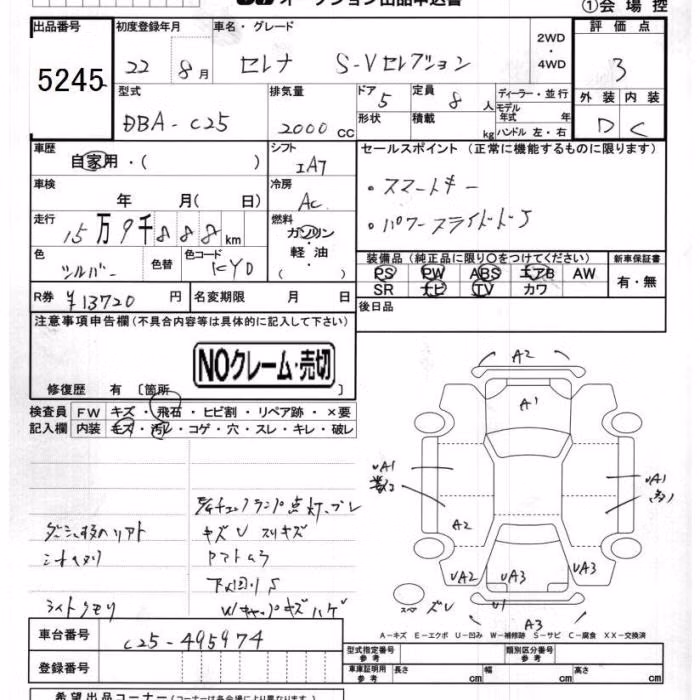 オークション出品申込書
①会場控
出品番号
初度登録年月
車名・グレード
2WD
・
4WD
評価点
5245
22 8月
セレナ S-Vセレクション
3
型式
排気量
ドア
定員
ディーラー・並行
外装
内装
DBA-C25
2000cc
5
8人
モデル年式 年
D
C
形状
積載
kg
ハンドル 左・右
車歴
自家用・( )
シフト
IA7
セールスポイント (正常に機能するものに限ります)
・スマートキー
・パワースライドドS
車検
年 月( 日)
冷房
AC
走行
15万9千888km
燃料
ガソリン
・
軽油
( )
色
シルバー
色替
色コード
KY0
装備品 (純正品に限り○をつけてください)
新車保証書
PS PW ABS エアB AW
SR ナビ TV カワ
有・無
R券
¥13720円
名変期限 月 日
後日品
注意事項申告欄(不具合内容等は具体的に記入して下さい)
NOクレーム・売切
修復歴 有〔箇所 〕
検査員
記入欄
FW キズ・飛石・ヒビ割・リペア跡・×要
内装 キズ・汚レ・コゲ・穴・スレ・キレ・破レ
キズU スリキズ
ライトクモリ
W/キャップキズハゲ
A2
A1
UA1
UA1
A2
UA2
UA3
UA3
U1
A3
A-キズ E-エクボ U-凹み W-補修跡 S-サビ C-腐食 XX-交換済
車台番号
C25-495974
登録番号
型式指定番号
参考
類別区分番号
参考
車庫証明用
参考
長さ cm
幅 cm
高さ cm
希望出品コーナー(コーナーは各会場により異なります)